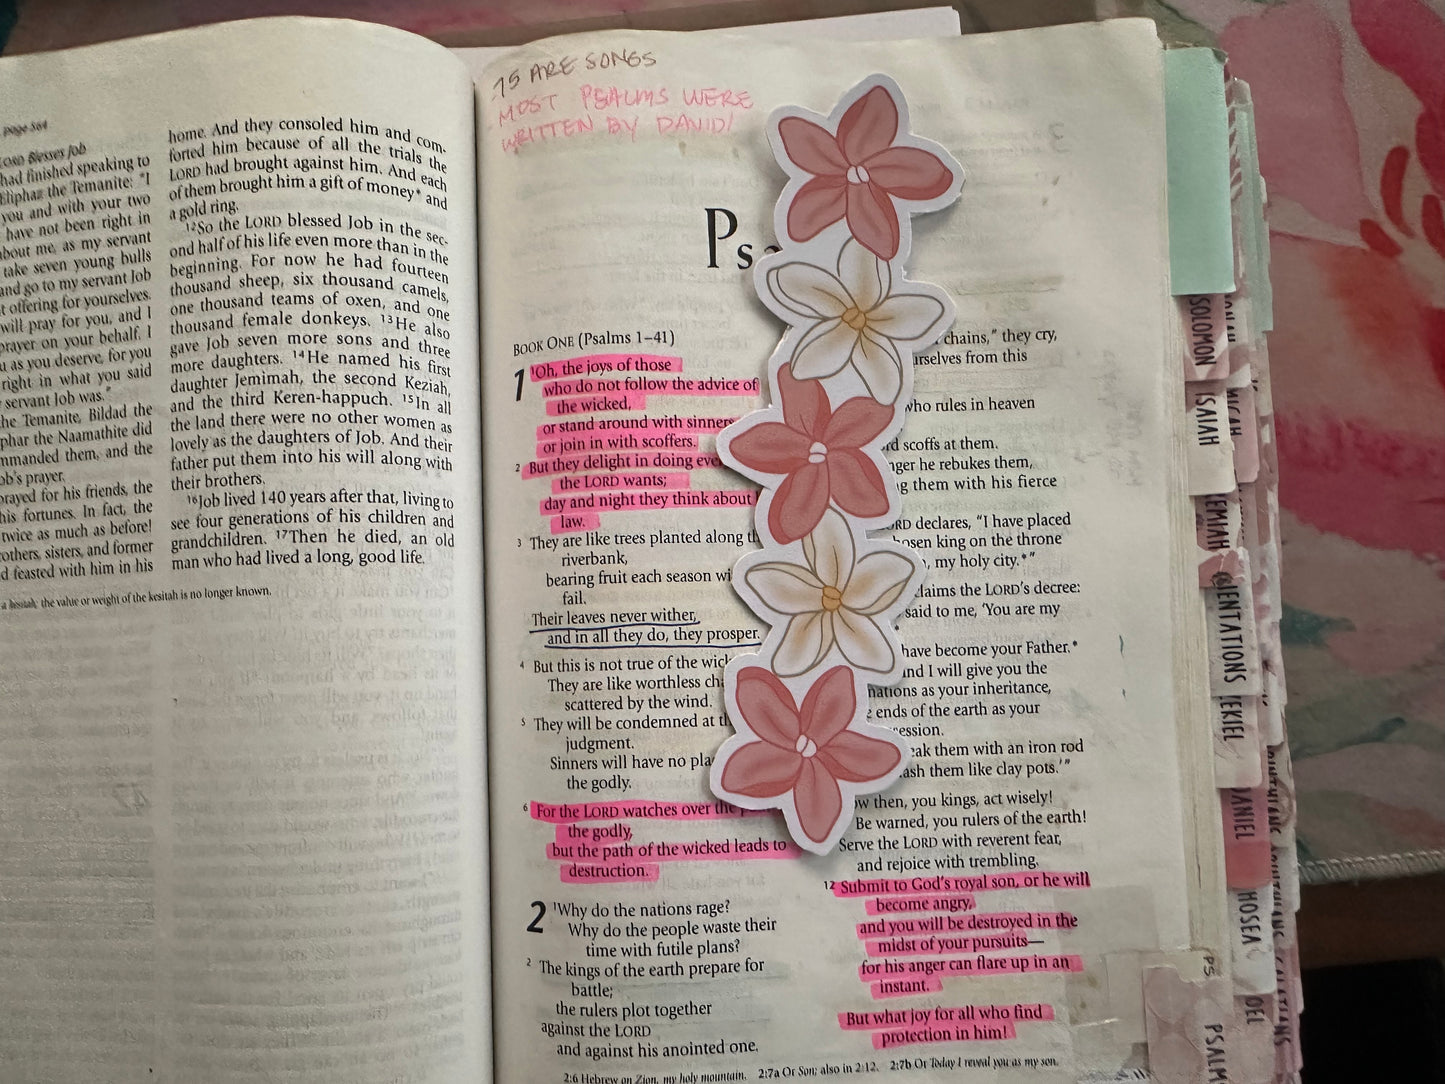 page 564
LORD Blesses Job
had finished speaking to
Eliphaz the Temanite: "I
you and with your two
have not been right in
about me, as my servant
take seven young bulls
and go to my servant Job
t offering for yourselves.
will pray for you, and I
prayer on your behalf. I
u as you deserve, for you
right in what you said
servant Job was."
he Temanite, Bildad the
phar the Naamathite did
mmanded them, and the
ob's prayer.
prayed for his friends, the
his fortunes. In fact, the
twice as much as before!
others, sisters, and former
d feasted with him in his
home. And they consoled him and com-
forted him because of all the trials the
LORD had brought against him. And each
of them brought him a gift of money* and
a gold ring.
12So the LORD blessed Job in the sec-
ond half of his life even more than in the
beginning. For now he had fourteen
thousand sheep, six thousand camels,
one thousand teams of oxen, and one
thousand female donkeys. 13He also
gave Job seven more sons and three
more daughters. 14He named his first
daughter Jemimah, the second Keziah,
and the third Keren-happuch. 15In all
the land there were no other women as
lovely as the daughters of Job. And their
father put them into his will along with
their brothers.
16Job lived 140 years after that, living to
see four generations of his children and
grandchildren. 17Then he died, an old
man who had lived a long, good life.
a kesitah; the value or weight of the kesitah is no longer known.
75 ARE SONGS
MOST PSALMS WERE
WRITTEN BY DAVID!
Psa
BOOK ONE (Psalms 1–41)
1 1Oh, the joys of those
who do not follow the advice of
the wicked,
or stand around with sinners
or join in with scoffers.
2 But they delight in doing eve
the LORD wants;
day and night they think about
law.
3 They are like trees planted along th
riverbank,
bearing fruit each season wi
fail.
Their leaves never wither,
and in all they do, they prosper.
4 But this is not true of the wick
They are like worthless cha
scattered by the wind.
5 They will be condemned at t
judgment.
Sinners will have no pla
the godly.
6 For the LORD watches over the
the godly,
but the path of the wicked leads to
destruction.
2 1Why do the nations rage?
Why do the people waste their
time with futile plans?
2 The kings of the earth prepare for
battle;
the rulers plot together
against the LORD
and against his anointed one.
chains," they cry,
urselves from this
who rules in heaven
rd scoffs at them.
nger he rebukes them,
ng them with his fierce
ORD declares, "I have placed
hosen king on the throne
, my holy city.*"
claims the LORD's decree:
said to me, 'You are my
*
have become your Father.*
and I will give you the
nations as your inheritance,
e ends of the earth as your
ession.
eak them with an iron rod
ash them like clay pots.'"
ow then, you kings, act wisely!
Be warned, you rulers of the earth!
Serve the LORD with reverent fear,
and rejoice with trembling.
12 Submit to God's royal son, or he will
become angry,
and you will be destroyed in the
midst of your pursuits—
for his anger can flare up in an
instant.
But what joy for all who find
protection in him!
2:6 Hebrew on Zion, my holy mountain. 2:7a Or Son; also in 2:12. 2:7b Or Today I reveal you as my son.
SOLOMON
ISAIAH
EMIAH
MENTATIONS
EKIEL
DANIEL
HOSEA
OEL
MICAH
PS
PSALM